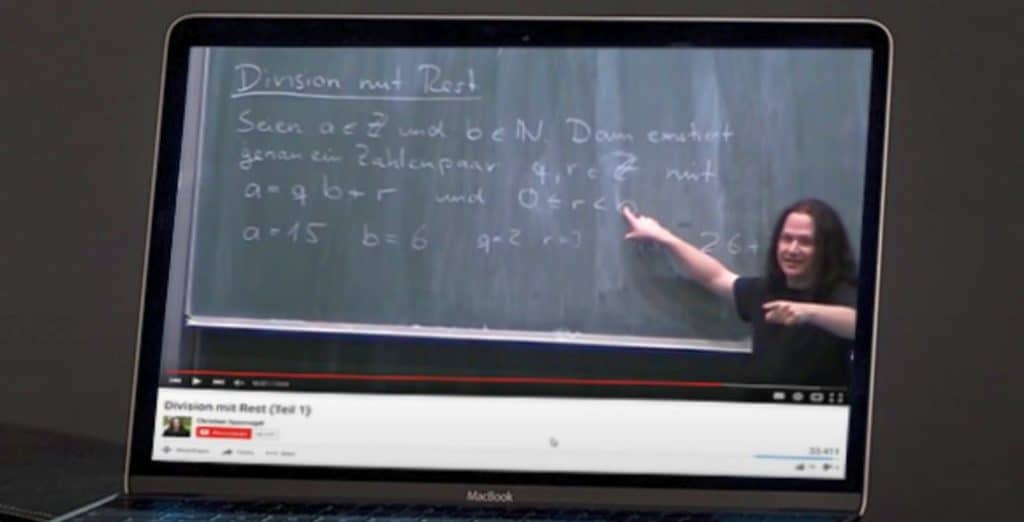 Division mit Rest
Seien a ∈ ℤ und b ∈ ℕ. Dann existiert
genau ein Zahlenpaar q, r ∈ ℤ mit
a = q b + r und 0 ≤ r <
a = 15 b = 6 q = 2 r = 3 2 6 +
Division mit Rest (Teil 1)
Christian Spannagel
33.411
MacBook